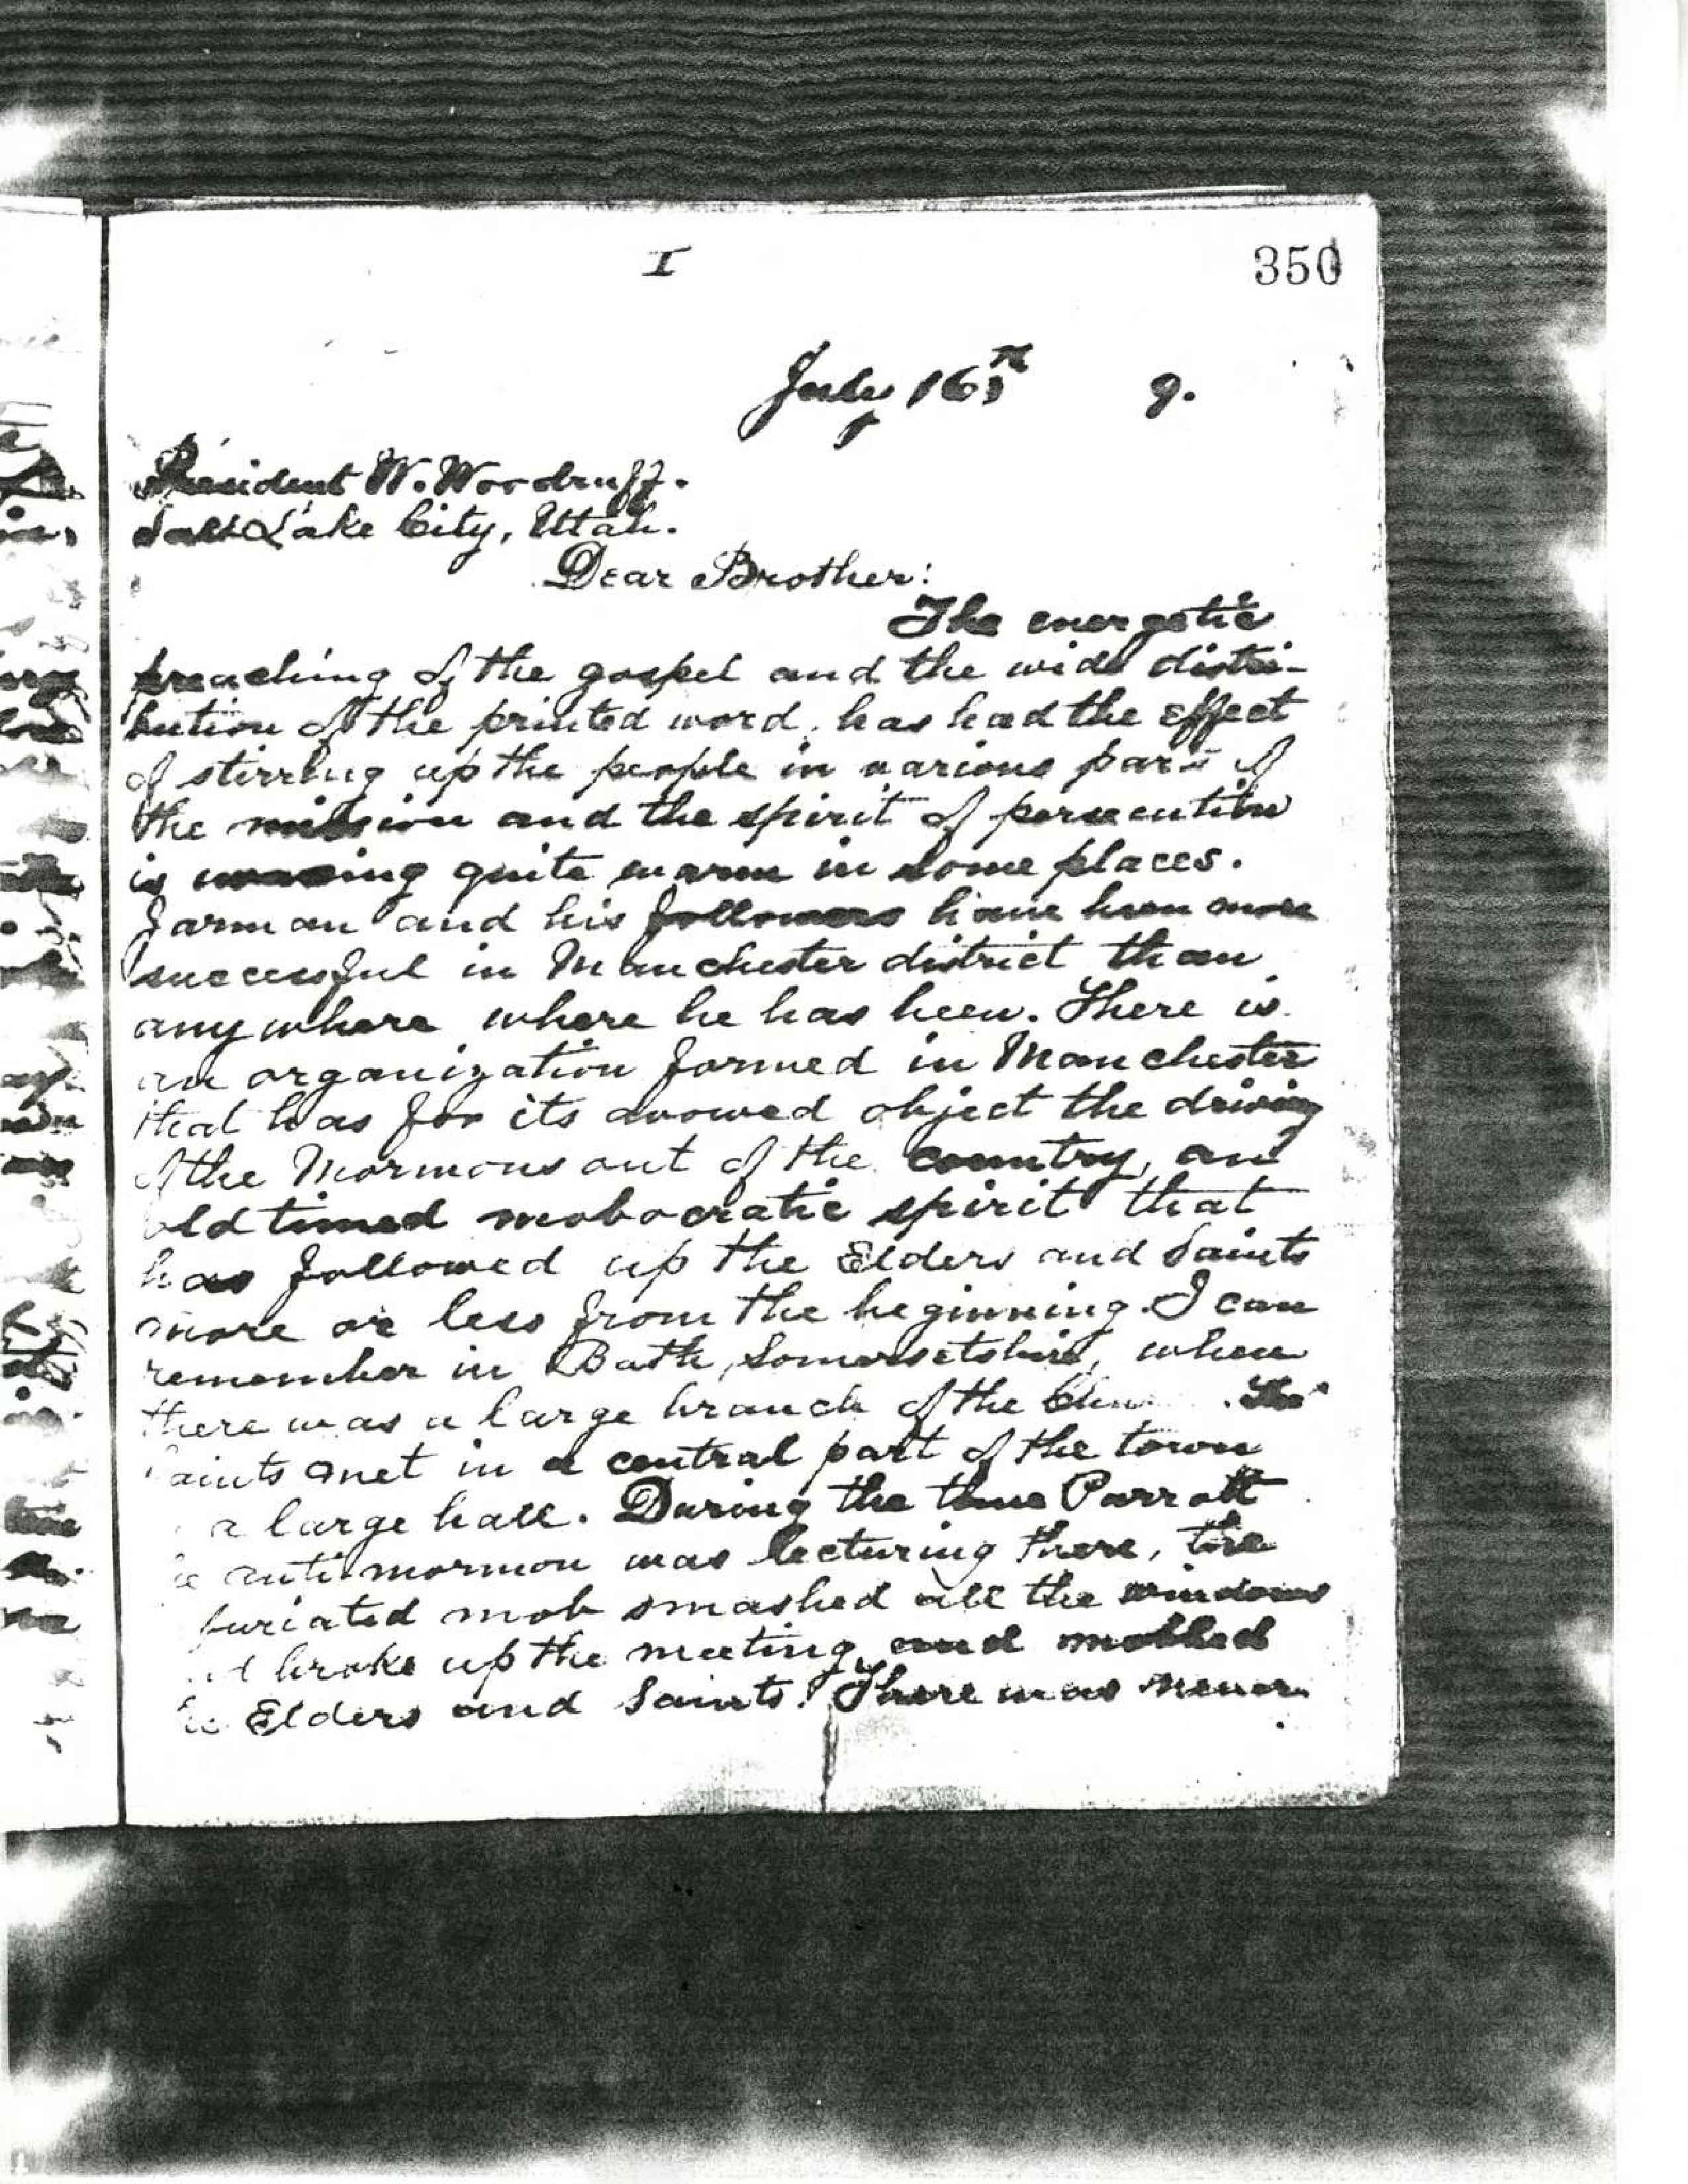 I
350
July 16th 9.
President W. Woodruff.
Salt Lake City, Utah.
Dear Brother:
The energetic
preaching of the gospel and the wide distri-
bution of the printed word, has had the effect
of stirring up the people in various parts of
the mission and the spirit of persecution
is waxing quite warm in some places.
Jarman and his followers have been more
successful in Manchester district than
anywhere where he has been. There is
an organization formed in Manchester
that has for its avowed object the driving
of the Mormons out of the country, an
old timed mobocratic spirit that
has followed up the Elders and Saints
more or less from the beginning. I can
remember in Bath, Somersetshire, when
there was a large branch of the Chu . The
aints met in a central part of the town
a large hall. During the time Parrott
e anti mormon was lecturing there, the
furiated mob smashed all the windows
d broke up the meeting, and mobbed
he Elders and Saints. There was never